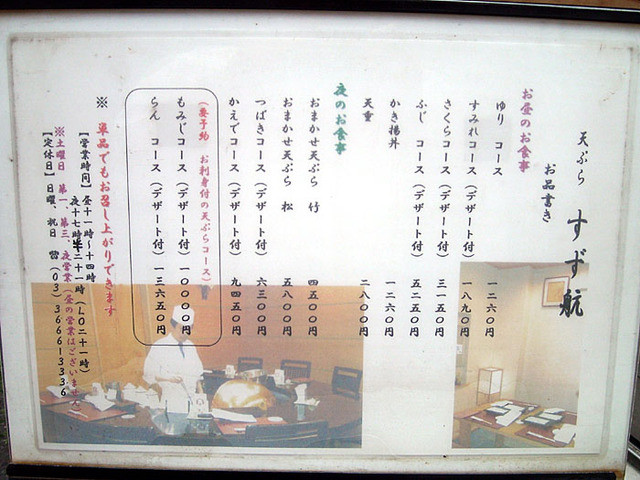 天ぷら すず航
お品書き
お昼のお食事
ゆり コース 一二六〇円
すみれコース(デザート付) 一八九〇円
さくらコース(デザート付) 三一五〇円
ふじ コース(デザート付) 五二五〇円
かき揚丼 一二六〇円
天重 二八〇〇円
夜のお食事
おまかせ天ぷら 竹 四五〇〇円
おまかせ天ぷら 松 五八〇〇円
つばきコース(デザート付) 六三〇〇円
かえでコース(デザート付) 九四五〇円
(要予約 お刺身付の天ぷらコース)
もみじコース(デザート付) 一〇〇〇〇円
らん コース(デザート付) 一三六五〇円
※単品でもお召し上がりできます
【営業時間】昼十一時〜十四時
夜十七時半〜二十一時(LO二十一時)
※土曜日 第一、第三、夜営業(昼の営業はございません
【定休日】日曜、祝日 ☎(03)3661-3336